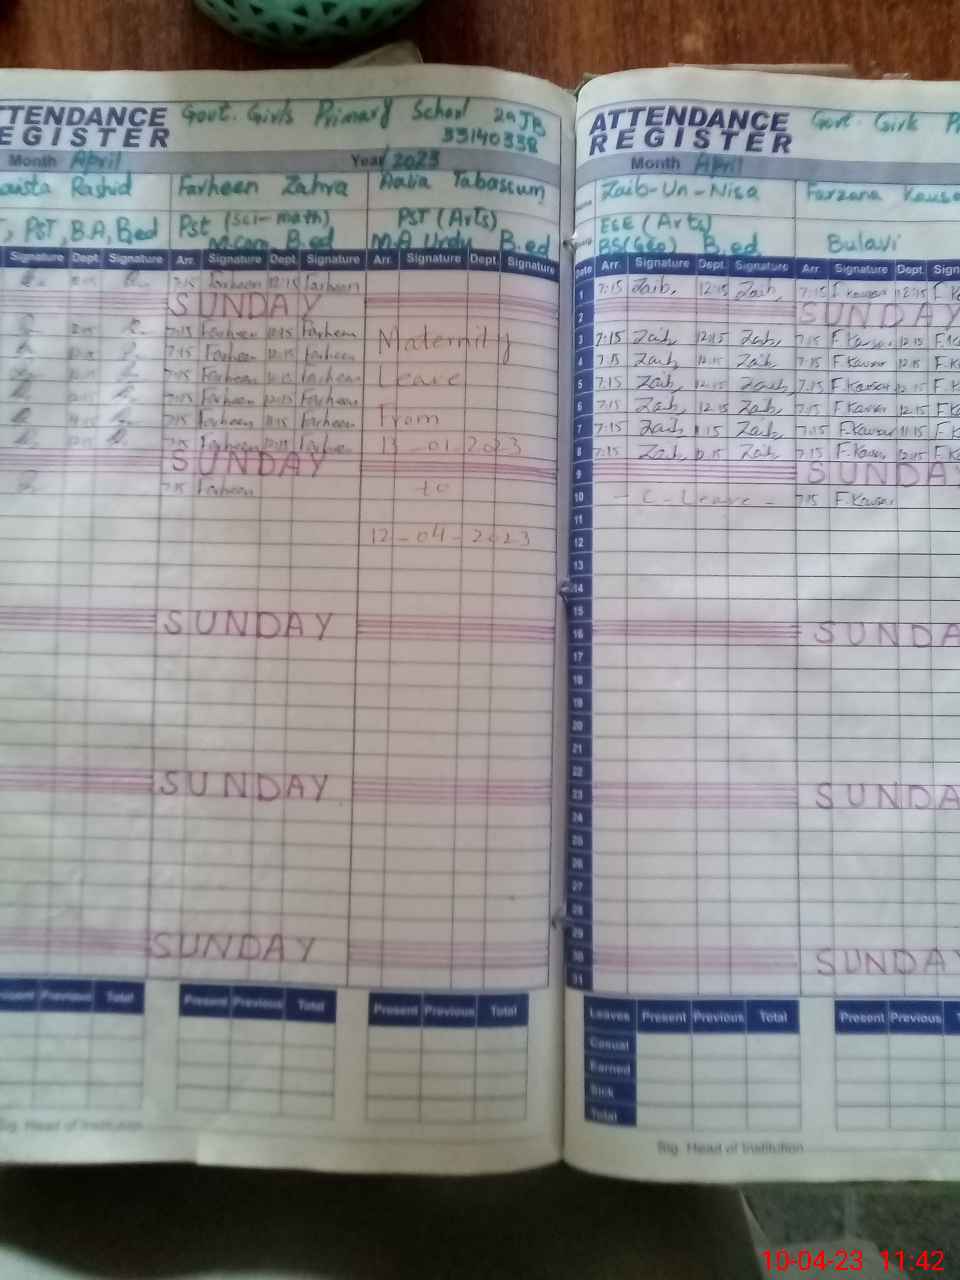 TTENDANCE
EGISTER
Govt. Girls Primary School 29 JB
33140338
Month April Year 2023
aista Rashid Farheen Zahra Aalia Tabassum
PST, B.A, B.ed Pst (Sci-math) PST (Arts)
M.com, B.ed M.A Urdu B.ed
Signature Dept. Signature Arr. Signature Dept. Signature Arr. Signature Dept. Signature
7:15 Farheen 12:15 Farheen
SUNDAY
7:15 Farheen 12:15 Farheen
Maternity
7:15 Farheen 12:15 Farheen
Farheen Farheen
Leave
7:15 Farheen 12:15 Farheen
7:15 Farheen 11:15 Farheen
From
Farheen 12:15
13-01-2023
SUNDAY
7:15 Farheen
to
12-04-2023
SUNDAY
SUNDAY
SUNDAY
Previous Total Present Previous Total Present Previous Total
Sig. Head of Institution
ATTENDANCE
REGISTER
Govt. Girls
Month April
Zaib-Un-Nisa Farzana
ESE (Arts)
BS(Geo) B.ed Bulavi
Date Arr. Signature Dept. Signature Arr. Signature Dept.
1 7:15 Zaib 12:15 Zaib 7:15 F.Kausar 12:15
2 SUNDAY
3 7:15 Zaib 12:15 Zaib 7:15 F.Kausar 12:15
4 7:15 Zaib 12:15 Zaib 7:15 F.Kausar 12:15
5 7:15 Zaib 12:15 Zaib 7:15 F.Kausar 12:15
6 7:15 Zaib 12:15 Zaib 7:15 F.Kausar 12:15
7 7:15 Zaib 11:15 Zaib 7:15 F.Kausar 11:15
8 7:15 Zaib 12:15 Zaib 7:15 F.Kausar 12:15
9 SUNDAY
10 - C-Leave - 7:15 F.Kausar
11
12
13
14
15
16 SUNDA
17
18
19
20
21
22
23 SUNDA
24
25
26
27
28
29
30 SUNDAY
31
Leaves Present Previous Total Present Previous
Casual
Earned
Sick
Total
Sig. Head of Institution
10-04-23 11:42